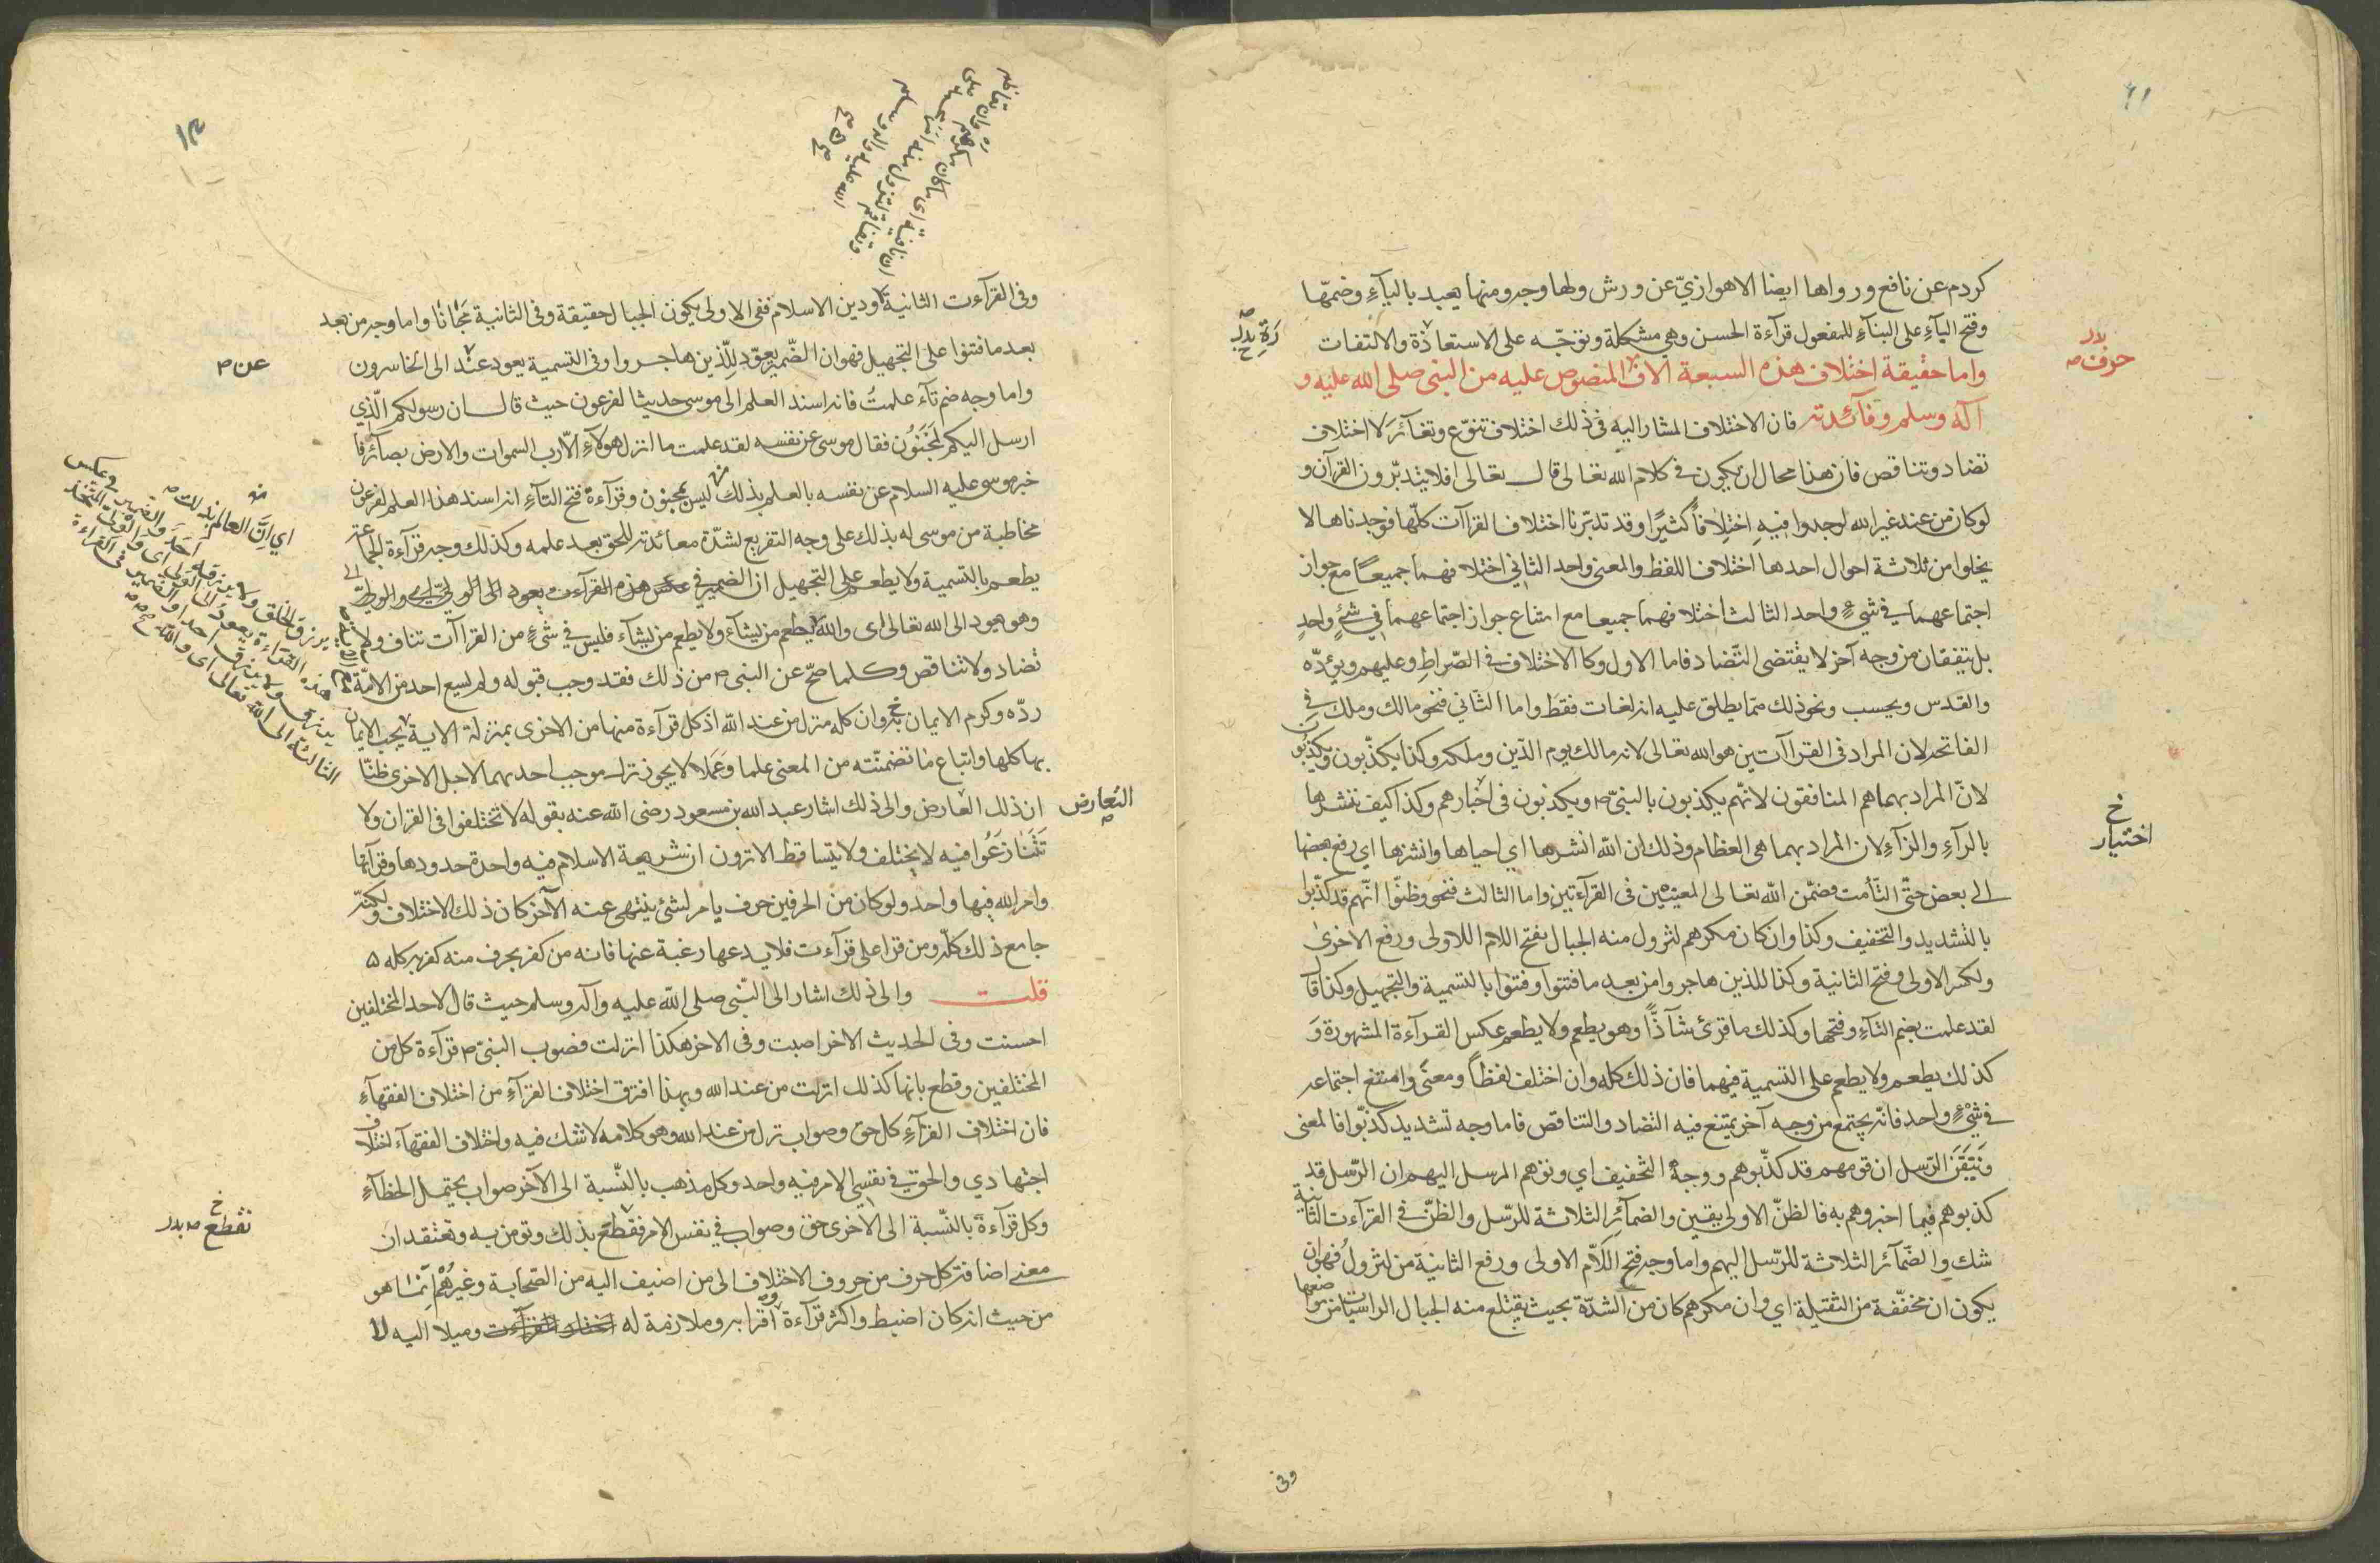 كردم عن نافع ورواها ايضا الاهوازيّ عن ورش ولها وجه ومنها يعبد بالياءِ وضمّها
وفتح الباءِ على البناءِ للمفعول قرآءة الحسن وهي مشكلة وتوجّه على الاستعاذة والالتفات
واما حقيقة اختلاف هذه السبعة الاف المنصوص عليه من النبى صلى الله عليه و
آله وسلم وفآئدته فان الاختلاف المشار اليه فى ذلك اختلاف تنوّع وتغآئر لا اختلاف
تضاد وتناقص فان هذا محال ان يكون فى كلام الله تعالى قال تعالى افلا يتدبّرون القرآن و
لوكان من عند غير الله لوجدوا فيهِ اختلافاً كثيرًا وقد تدبّرنا اختلاف القراآت كلّها فوجدناها لا
يخلوا من ثلاثة احوال احدها اختلاف اللفظ والمعنى واحد الثاني اختلافهما جميعًا مع جواز
اجتماعهما في شيءٍ واحد الثالث اختلافهما جميعا مع امتناع جواز اجتماعهما في شئٍ واحدٍ
بل يتفقان من وجه آخر لا يقتضى التّضاد فاما الاول وكا الاختلاف فى الصّراط وعليهم ويؤدّه
والقدس ويحسب ونحو ذلك ممّا يطلق عليه انه لغات فقط واما الثّاني فنحو مالك وملك في
الفاتحه لان المراد فى القراآتين هو الله تعالى لانه مالك يوم الدّين وملكه وكذا يكذّبون ويكذبون
لانّ المراد بهما هم المنافقون لانّهم يكذبون بالنبىّ ص ويكذبون فى اخبارهم وكذا كيف ننشرها
بالرآءِ والزآءِ لان المراد بهما هى العظام وذلك ان الله انشرها اي احياها وانشزها اي رفع بعضها
الى بعض حتّى التأمت فضمّن الله تعالى المعنيين فى القرآءتين واما الثالث فنحو وظنّوا انّهم قد كذّبوا
بالتشديد والتخفيف وكذا وان كان مكرهم لتزول منه الجبال بفتح اللام اللاولى ورفع الاخرى
وبكسر الاولى وفتح الثانية وكذا للذين هاجروا من بعد ما فتنوا وفتنوا بالتسمية والتجهيل وكذا قال
لقد علمت بضم التآءِ وفتحها وكذلك ما قرئ شآذًّا وهو يطعم ولا يطعم عكس القرآءة المشهورة وَ
كذلك يطعم ولا يطعم على التسمية فيهما فان ذلك كله وان اختلف لفظاً ومعنًى وامتنع اجتماعه
فى شيْءٍ واحد فانّه يجتمع من وجه آخر يمتنع فيه التضاد والتناقص فاما وجه تشديد كذبّوا فالمعنى
وَتَيَقَّنَ الرّسل ان قومهم قد كذّبوهم ووجهُ التّخفيف اي وتوهم المرسل اليهم ان الرّسل قد
كذبوهم فيما اخبروهم به فالظنّ الاولى يقين والضمآئر الثلاثة للرّسل والظنّ فى القرآءت الثانية
شك والضّمآئر الثلاثة للرّسل اليهم واما وجه فتح اللاّم الاولى ورفع الثانية من لتزولُ فهو ان
يكون ان مخفّفة من الثقيلة اي وان مكرهم كان من الشّدّة بحيث يقتلع منه الجبال الراسيات من مواضعها
بدل
حرف ص
خ
اختيار
وفى
وفى القرآءت الثانية ودين الاسلام ففى الاولى يكون الجبال حقيقة وفى الثانية مجازا واما وجه من بعد
بعد ما فتنوا على التجهيل فهو ان الضّمير يعود للّذين هاجروا وفى التسمية يعود عند الى الخاسرون
واما وجه ضم تآء علمتُ فانه اسند العلم الى موسى حديثا لفرعون حيث قال ان رسولكم الّذي
ارسل اليكم لمَجْنُون فقال موسى عن نفسه لقد علمت ما انزل هولاءِ الاّ رب السموات والارض بصآئر فا
خبر موسى عليه السلام عن نفسه بالعلم بذلك ليس بمجنون وقرآءة فتح التآءِ انه اسند هذا العلم لفرعون
مخاطبة من موسى له بذلك على وجه التفريع لشدّة معاندته للحق بعد علمه وكذلك وجه قرآءة الجماعة
يطعم بالتسمية ولا يطعم على التجهيل ان الضمير في هذه القرآءت يعود الى الولىّ
وهو يعود الى الله تعالى اى والله يطعم من يشآء ولا يطعم من يشآء فليس فى شئٍ من القراآت تناف ولا
تضاد ولا تناقص وكلما صحّ عن النبى ص من ذلك فقد وجب قبوله ولم يسع احد من الامّة
ردّه وكرم الايمان به وان كله منزل من عند الله اذ كل قرآءة منها من الاخرى بمنزلة الاية يجب الايمان
بها كلها واتباع ما تضمنّته من المعنى علما وعملا لا يجوز ترك موجب احدهما لاجل الاخرى ظنّا
ان ذلك العارض والى ذلك اشار عبد الله بن مسعود رضى الله عنه بقوله لا تختلفوا فى القران ولا
تَتَنازَعُوا فيه لا يختلف ولا يتساقط الا ترون ان شريعة الاسلام فيه واحدة حدودها وقرآتها
وامر الله فيها واحد ولو كان من الحرفين حرف يامر لشئ ينتهى عنه الآخر كان ذلك الاختلاف ولكنّه
جامع ذلك كلّه ومن قرا على قرآءت فلا يدعها رغبة عنها فانه من كفر بحرف منه كفر به كله ۵
قلت والى ذلك اشار الى النّبى صلى الله عليه وآله وسلم حيث قال لاحد المختلفين
احسنت وفى الحديث الاخر اصبت وفى الاخر هكذا انزلت فصوب النبىّ ص قرآءة كل من
المختلفين وقطع بانها كذلك انزلت من عند الله وبهذا افترق اختلاف القرآءِ من اختلاف الفقهآءِ
فان اختلاف القرآءِ كل حق وصواب نزل من عند الله وهو كلامه لا شك فيه واختلاف الفقهآء اختلاف
اجتهادي والحق في نفسي الامر فيه واحد وكل مذهب بالنّسبة الى الآخر صواب يحتمل الخطآءِ
وكل قرآءة بالنّسبة الى الاخرى حق وصواب في نفس الامر فقطع بذلك ونومن به ونعتقد ان
معنى اضافة كل حرف من حروف الاختلاف الى من اضيف اليه من الصّحابة وغيرهُمْ اِنّما هو
من حيث انه كان اضبط واكثر قرآءة واقرا به وملازمة له وميلا اليه لا
عن ص
التعارض
خ
نقطع ص بدل